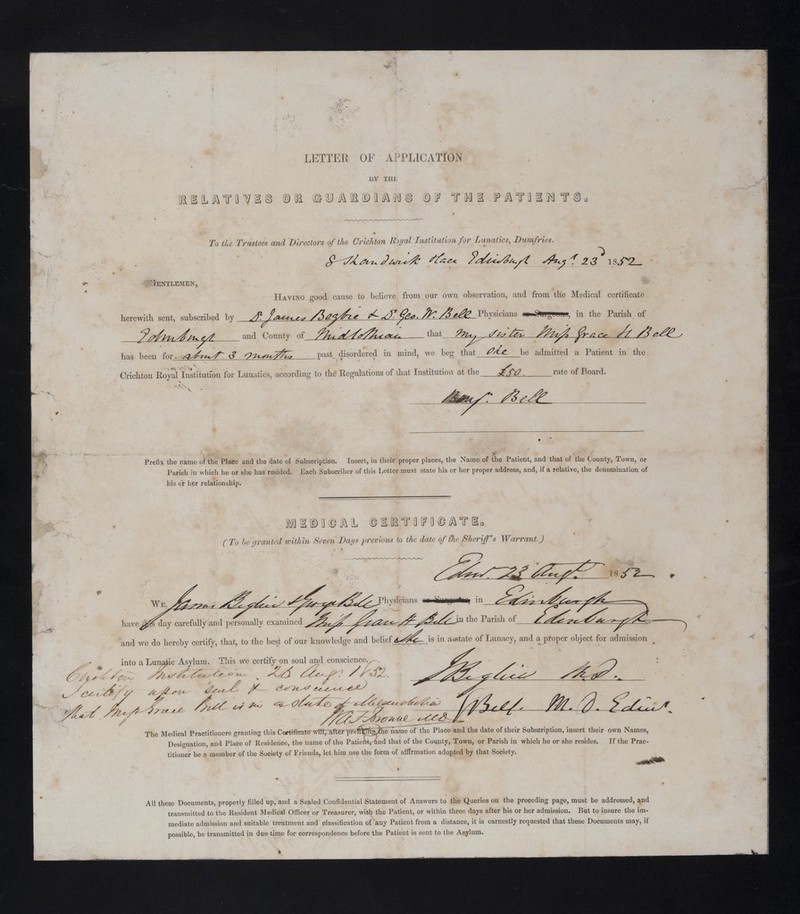 LETTER OF APPLICATION
BY THE
RELATIVES OR GUARDIANS OF THE PATIENTS.
To the Trustees and Directors of the Crichton Royal Institution for Lunatics, Dumfries.
8 Shandwick Place Edinburgh Augt. 23d 1852
GENTLEMEN,
HAVING good cause to believe from our own observation, and from the Medical certificate
herewith sent, subscribed by Dr. James Begbie & Dr Geo. W. Bell Physicians or Surgeons, in the Parish of
Edinburgh and County of Midlothian that my sister Miss Grace H Bell
has been for about 3 months past disordered in mind, we beg that she be admitted a Patient in the
Crichton Royal Institution for Lunatics, according to the Regulations of that Institution at the £50 rate of Board.
Benj. Bell
Prefix the name of the Place and the date of Subscription. Insert, in their proper places, the Name of the Patient, and that of the County, Town, or
Parish in which he or she has resided. Each Subscriber of this Letter must state his or her proper address, and, if a relative, the denomination of
his or her relationship.
MEDICAL CERTIFICATE.
(To be granted within Seven Days previous to the date of the Sheriff's Warrant.)
Edinr. 23 Augt. 1852
We, James Begbie & George Bell Physicians or Surgeons in Edinburgh
have this day carefully and personally examined Miss Grace H. Bell in the Parish of Edinburgh
and we do hereby certify, that, to the best of our knowledge and belief she is in a state of Lunacy, and a proper object for admission
into a Lunatic Asylum. This we certify on soul and conscience,
Crichton Institution. Aug. 1852
J Begbie M.D.
I certify upon soul & conscience
that Miss Grace Bell is in a state of Melancholia
Bell. M.D. Edinr.
W A F Browne MD
The Medical Practitioners granting this Certificate will, after prefixing the name of the Place and the date of their Subscription, insert their own Names,
Designation, and Place of Residence, the name of the Patient, and that of the County, Town, or Parish in which he or she resides. If the Prac-
titioner be a member of the Society of Friends, let him use the form of affirmation adopted by that Society.
All these Documents, properly filled up, and a Sealed Confidential Statement of Answers to the Queries on the preceding page, must be addressed, and
transmitted to the Resident Medical Officer or Treasurer, with the Patient, or within three days after his or her admission. But to insure the im-
mediate admission and suitable treatment and classification of any Patient from a distance, it is earnestly requested that these Documents may, if
possible, be transmitted in due time for correspondence before the Patient is sent to the Asylum.